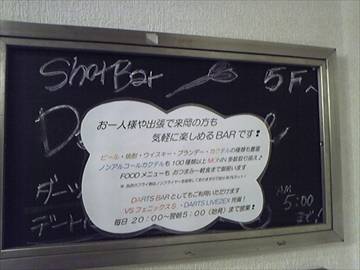 Shot Bar
5F へ
D
お一人様や出張で来岡の方も
気軽に楽しめるBARです❢
ビール・焼酎・ウイスキー・ブランデー・カクテルの種類も豊富
ノンアルコールカクテルも100種類以上MONIN多数取り揃え♪
FOODメニューも おつまみ～軽食まで御座います
DARTS BARとしてもご利用いただけます
VSフェニックスS ・DARTS LIVE2EX 完備！
毎日 20:00～翌朝5:00（効長）まで営業❢
ダーツ
デート
AM
5:00
まで！